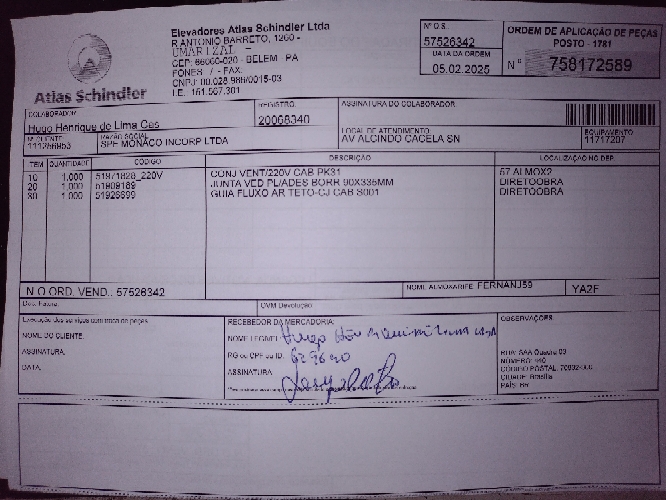 Atlas Schindler
Elevadores Atlas Schindler Ltda
R ANTONIO BARRETO, 1260 -
UMARIZAL -
CEP: 66060-020 - BELEM - PA
FONES / - FAX.
CNPJ: 00.028.986/0015-03
I.E.: 151.567.301
Nº O.S.
57526342
DATA DA ORDEM
05.02.2025
ORDEM DE APLICAÇÃO DE PEÇAS
POSTO - 1781
Nº 758172589
COLABORADOR
Hugo Henrique de Lima Ges
REGISTRO.
20068340
ASSINATURA DO COLABORADOR
Nº CLIENTE
111256953
RAZÃO SOCIAL
SPE MONACO INCORP LTDA
LOCAL DE ATENDIMENTO
AV ALCINDO CACELA SN
EQUIPAMENTO
11717207
ITEM QUANTIDADE CODIGO DESCRIÇÃO LOCALIZAÇÃO NO DEP.
10 1,000 51971828_220V CONJ VENT/220V CAB PK31 57 ALMOX2
20 1,000 51909189 JUNTA VED PL/ADES BORR 90X335MM DIRETOOBRA
30 1,000 51926699 GUIA FLUXO AR TETO-CJ CAB S001 DIRETOOBRA
N.O ORD. VEND.: 57526342
NOME ALMOXARIFE FERNANJ59
YA2F
Doc. Fatura:
OVM Devolução:
Execução dos serviços com troca de peças
NOME DO CLIENTE:
ASSINATURA:
DATA:
RECEBEDOR DA MERCADORIA:
NOME LEGÍVEL: Hugo
RG ou CPF ou ID:
ASSINATURA:
OBSERVAÇÕES
RUA: SAA Quadra 03
NÚMERO: 940
CÓDIGO POSTAL: 70632-300
CIDADE: Brasília
PAÍS: BR